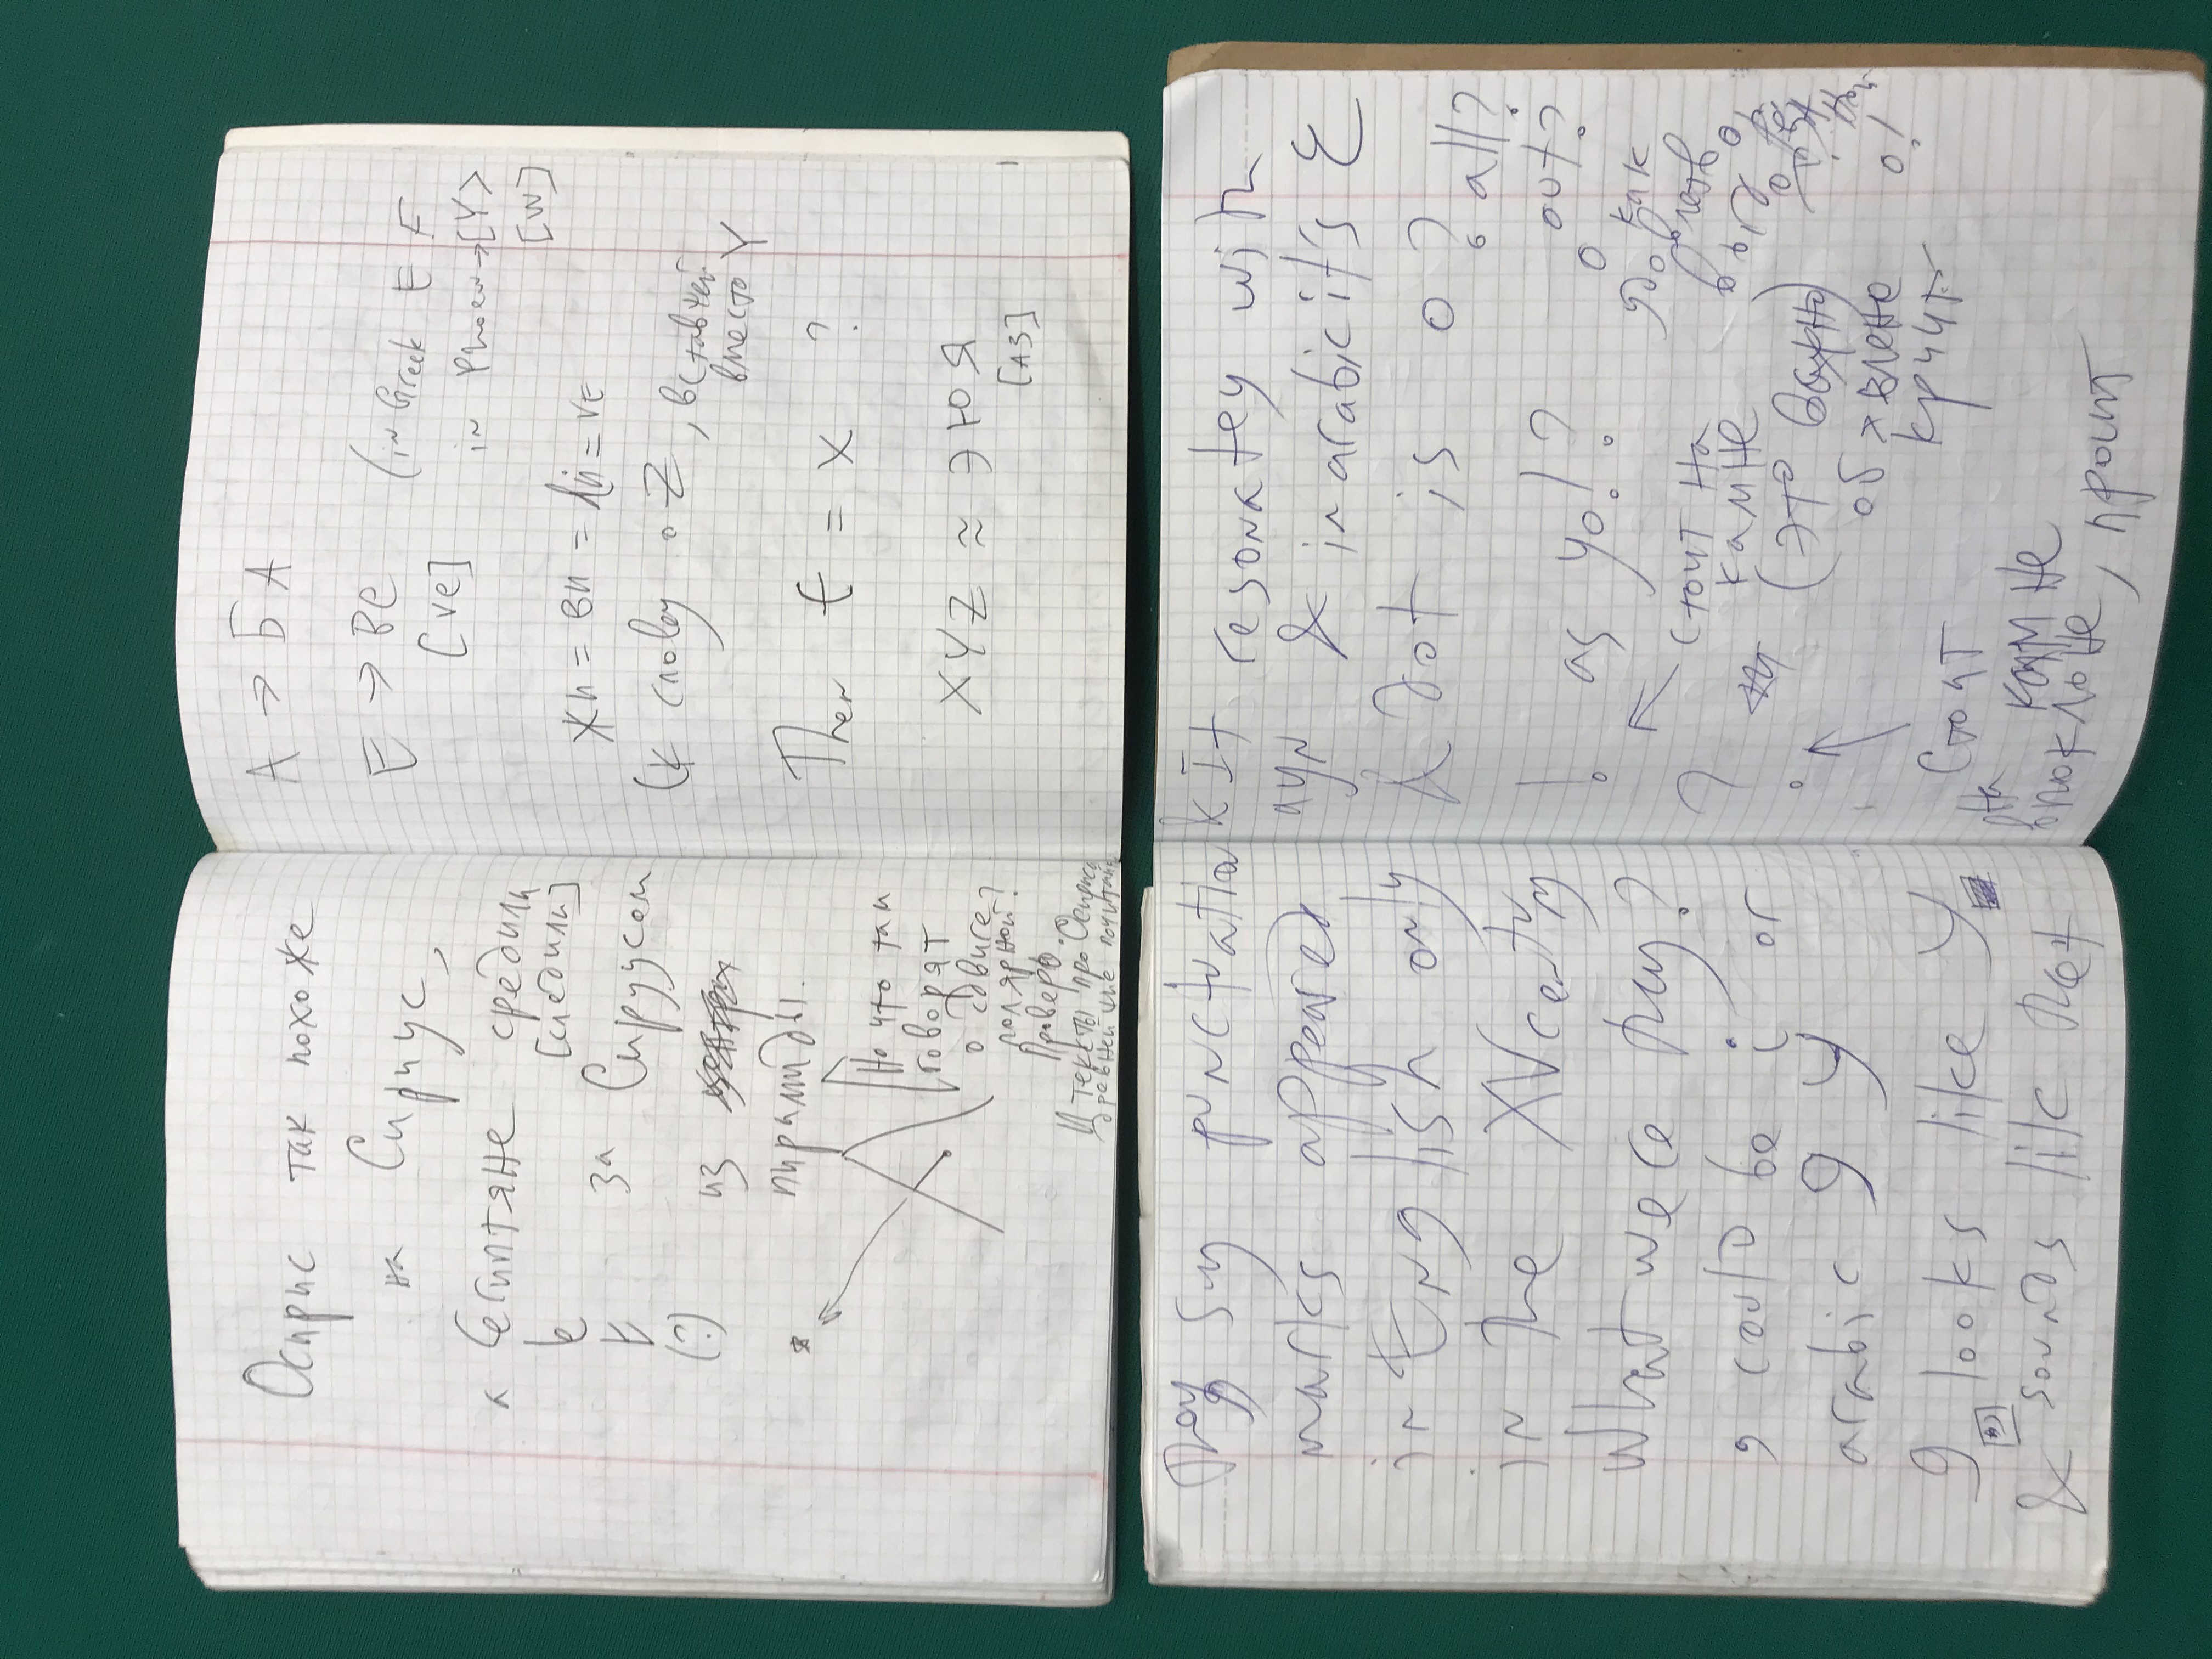 Осирис так похоже
на Сириус,
а Египтяне средили
[следили]
е
E
(?)
за Сируусом
из
пирамиды.
Но что там
говорят
о сдвиге
полярной?
Проверь.
И тексты про Осириса
древнейшие почитай
A → БА
E → ВЕ (in Greek E F
[ve] in Phoen → [Y>
[W]
жи = ви = = VE
(к слову о Z, вставшей
вместо Y
Then E = X ?
XYZ ≈ ЭЮЯ
[АЗ]
They say punctuation
marks appeared
in English only
in the XV century
What were they?
, could be i or
arabic 9 y
9 looks like y
& sounds like that
It resonatey with
ayn & in arabic it's Ɛ
& dot is o?
all?
! as yo!? out?
o
как
стоит на
камне
?
(это важно)
объявлене
кричит
o!
Стоит
на камне
в поклоне, просит